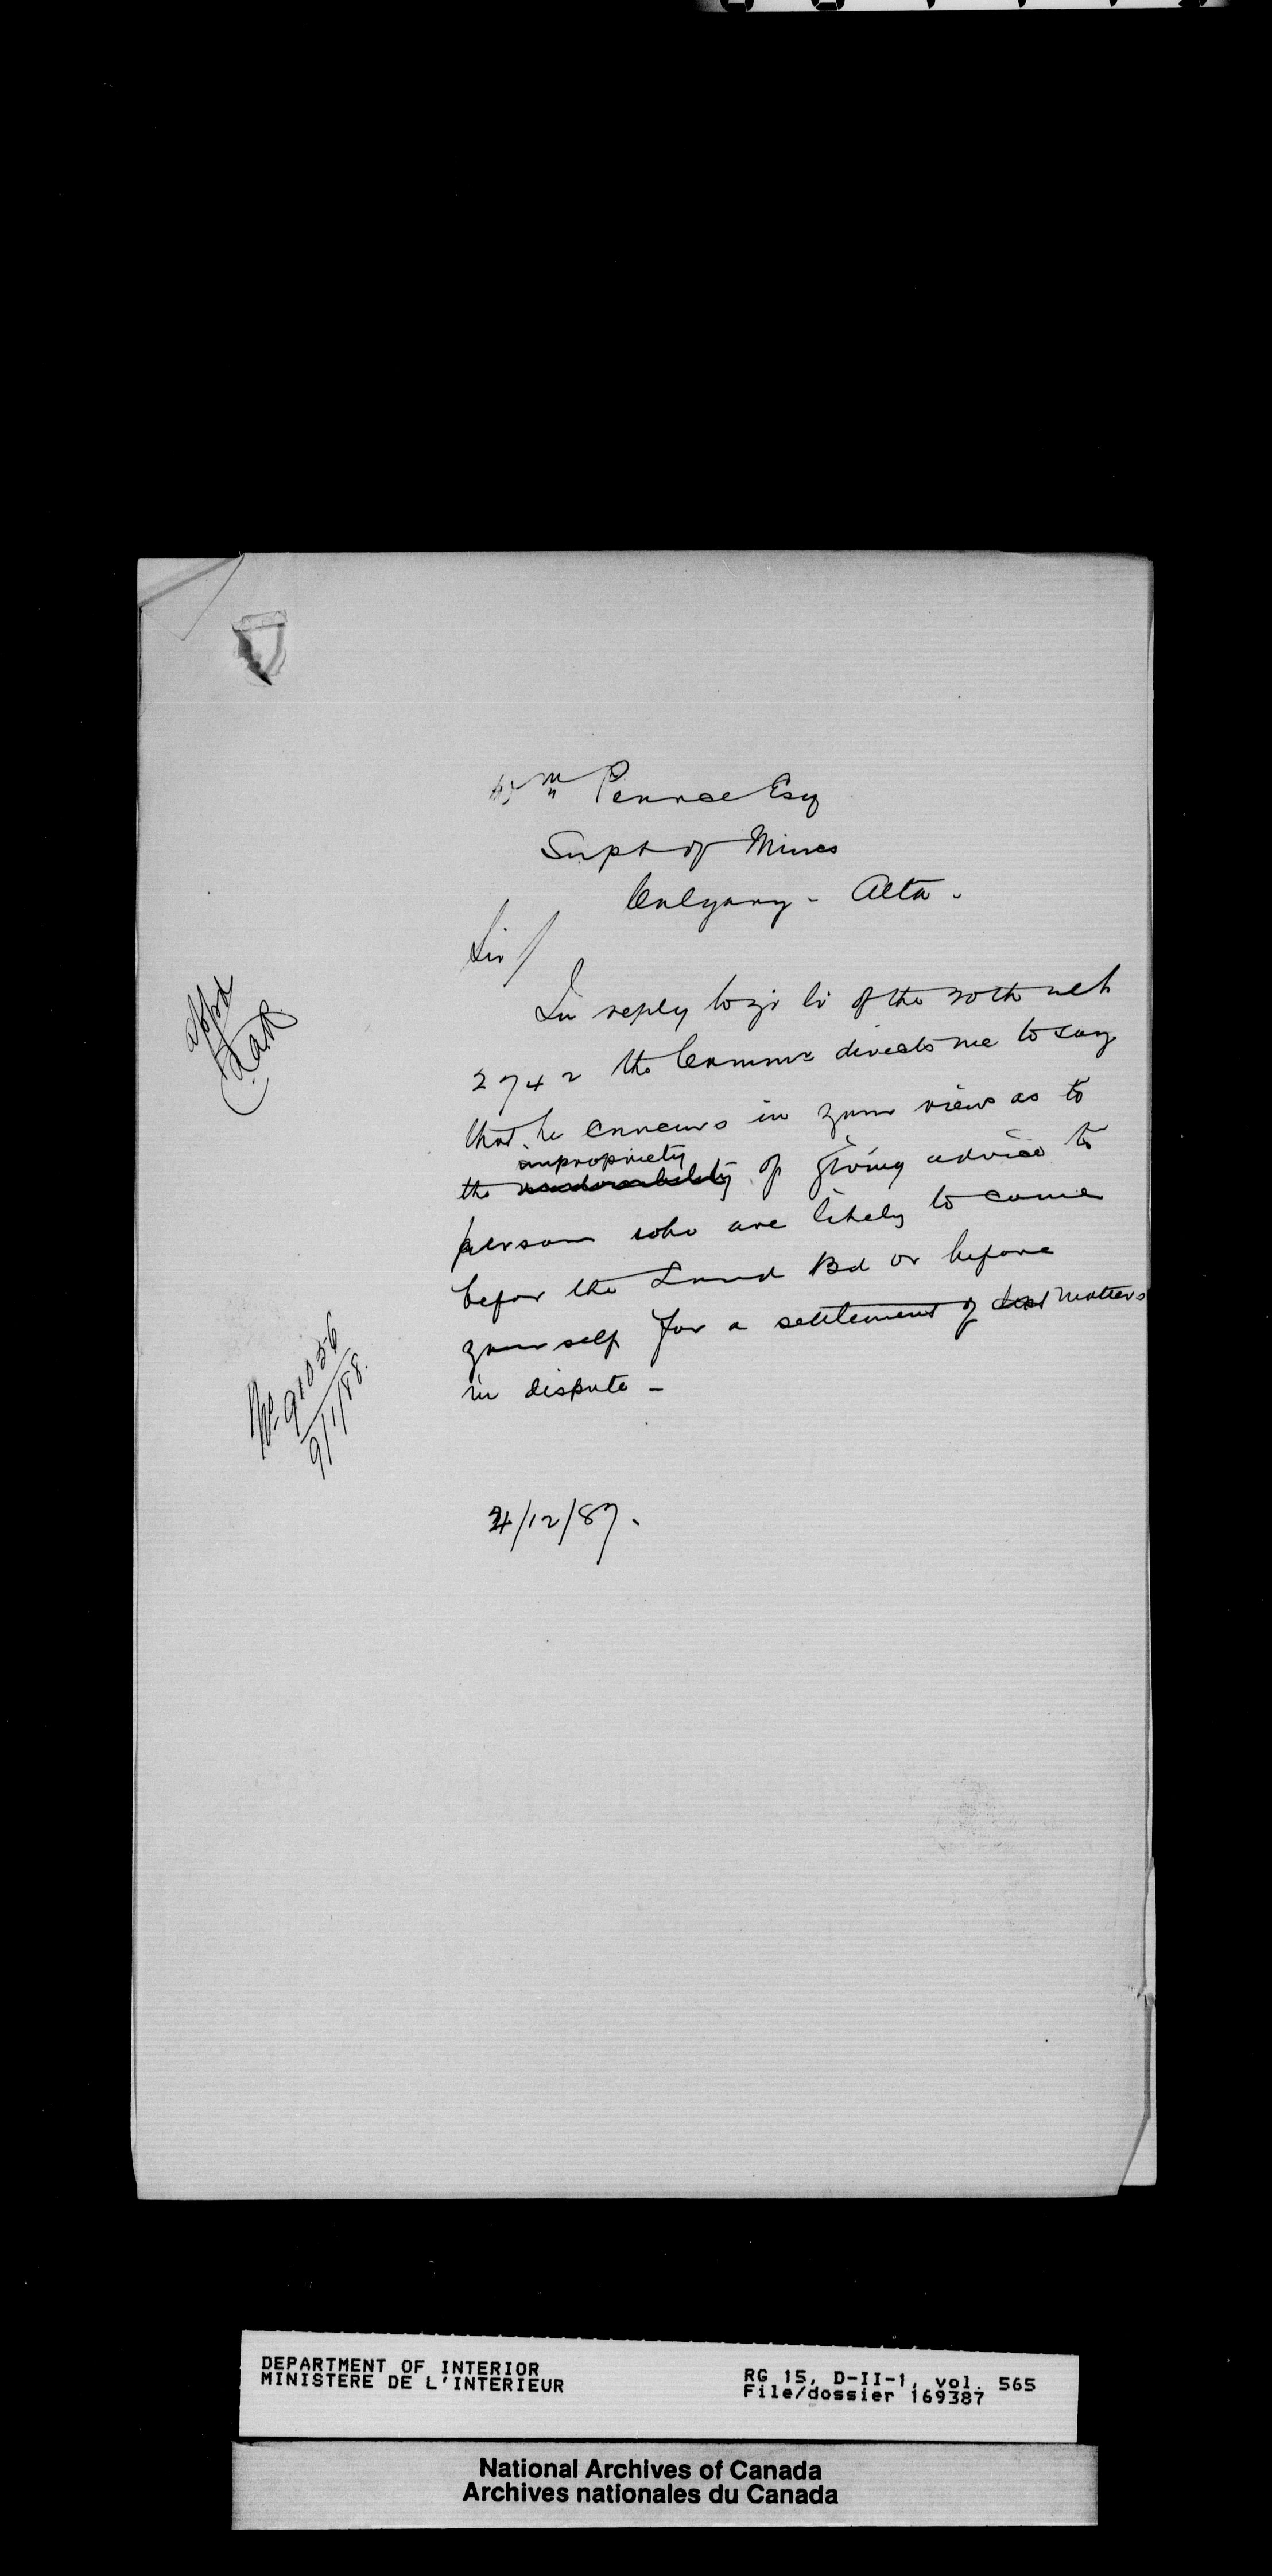 Wm Pearce Esq
Supt of Mines
Calgary - Alta.
Sir/
In reply to yr lr of the 30th ult
2742 the Commr directs me to say
that he concurs in your views as to
impropriety
the of giving advice to
person who are likely to come
befor the Land Bd or before
yourself for a settlement of matters
in dispute -
4/12/87.
appd
No 91056
9/1/88.
DEPARTMENT OF INTERIOR
MINISTERE DE L'INTERIEUR
RG 15, D-II-1, vol. 565
File/dossier 169387
National Archives of Canada
Archives nationales du Canada